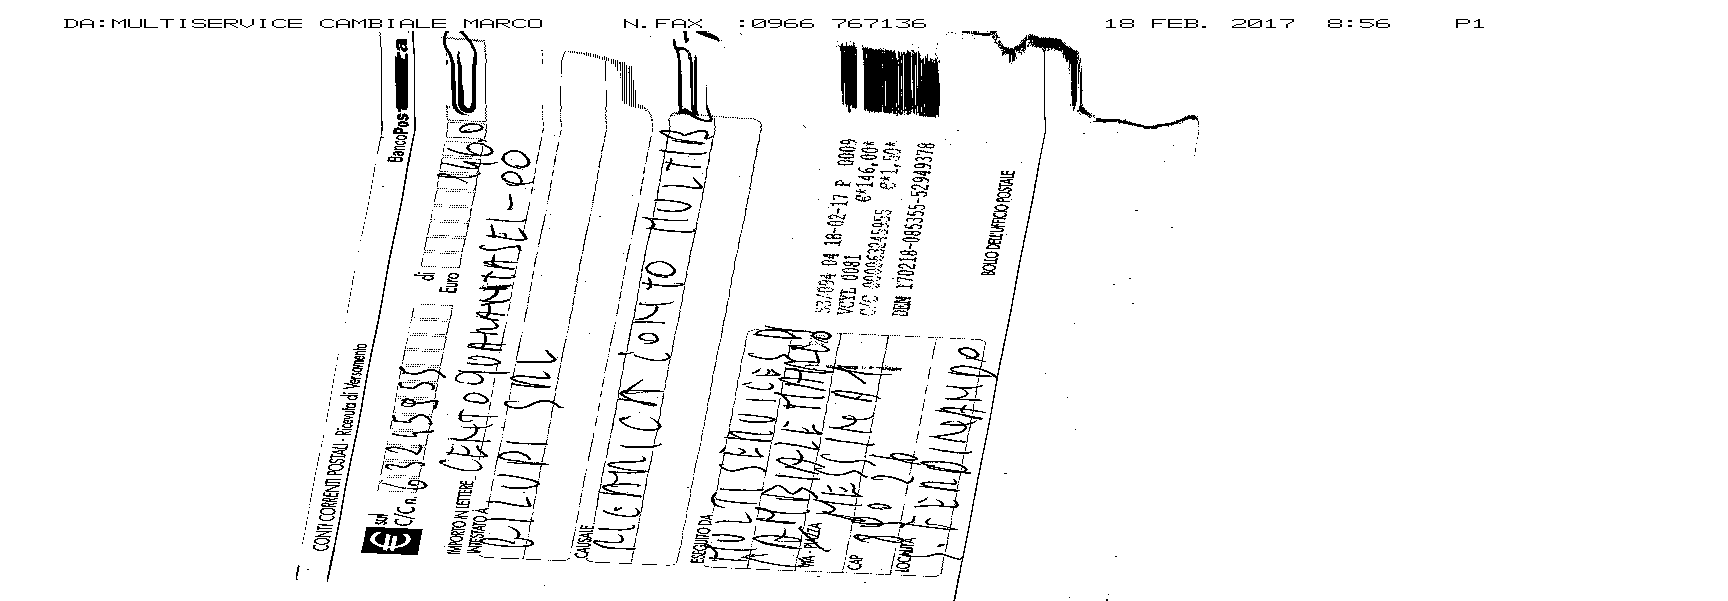 DA:MULTISERVICE CAMBIALE MARCO N.FAX :0966 767136 18 FEB. 2017 8:56 P1
CONTI CORRENTI POSTALI - Ricevuta di Versamento BancoPosta
€ sul C/C n. 63245955 di Euro 146,0
IMPORTO IN LETTERE CENTOQUARANTASEI-00
INTESTATO A
BIZUPI SRL
CAUSALE
RICARICA CONTO MULTISE
ESEGUITO DA
MULTISERVICES D
CAMBIALE MARCO
VIA - PIAZZA MESSINA 1
CAP
LOCALITÀ S. FERDINANDO
53/094 04 18-02-17 P 0009
VCYL 0081 €*146,00*
C/C 000063245955 €*1,50*
DEN 170218-085355-52949378
BOLLO DELL'UFFICIO POSTALE